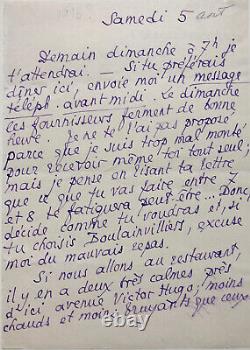 Samedi 5 août
Demain dimanche à 7h je
t'attendrai. — Si tu préférais
dîner ici, envoie moi un message
téléph. avant midi. Le dimanche
les fournisseurs ferment de bonne
heure. Je ne te l'ai pas proposé
parce que je suis trop mal monté
pour recevoir même toi tout seul;
mais je pense en lisant ta lettre
que ce que tu vas faire entre 7
et 8 te fatiguera peut être... Donc,
décide comme tu voudras et, si
tu choisis Boulainvilliers, excuse
moi du mauvais repas.
Si nous allons au restaurant,
il y en a deux très calmes près
d'ici avenue Victor Hugo, moins
chauds et moins bruyants que ceux
© ebay.com